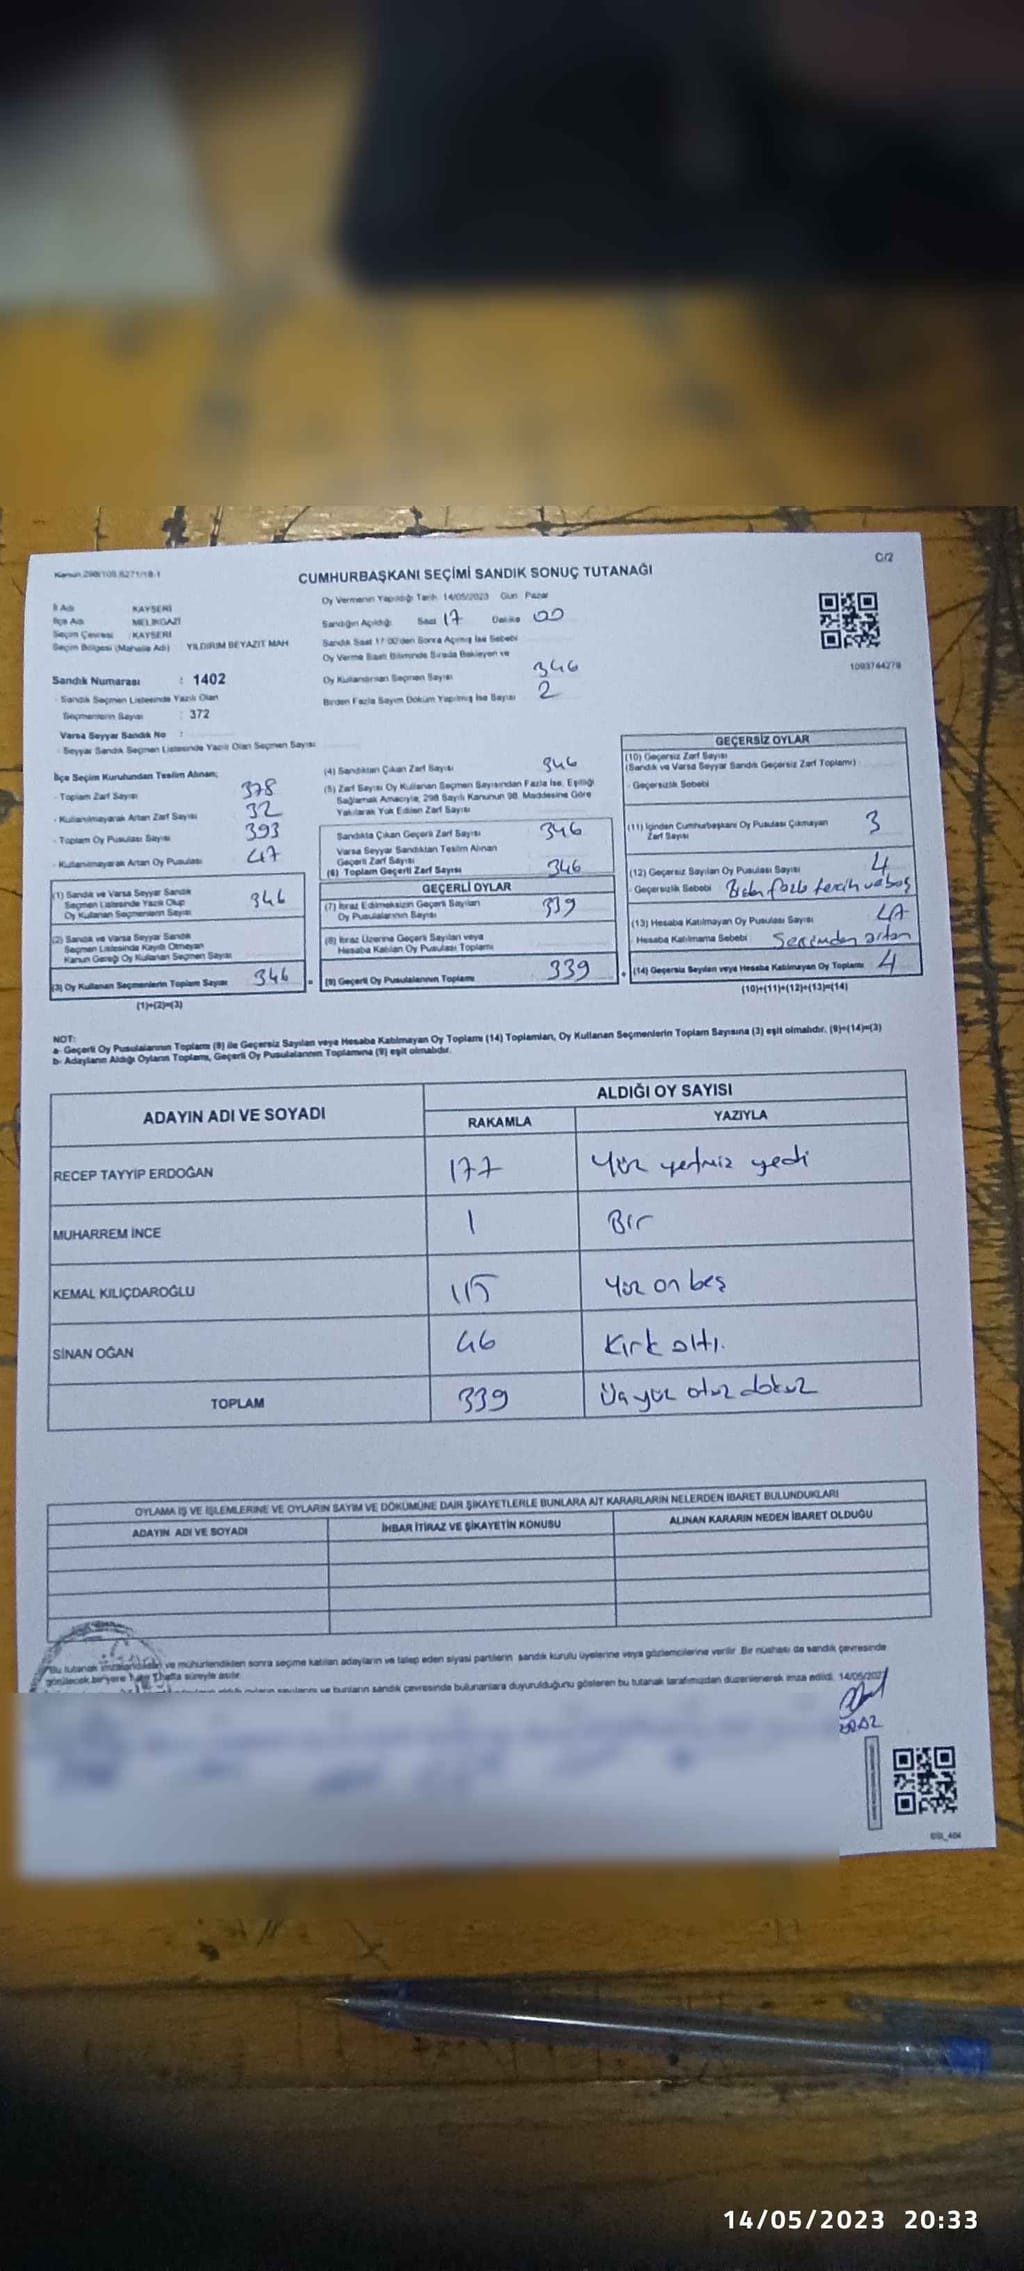 Kanun 298/109,6271/18-1
C/2
CUMHURBAŞKANI SEÇİMİ SANDIK SONUÇ TUTANAĞI
İl Adı KAYSERİ
İlçe Adı MELİKGAZİ
Seçim Çevresi : KAYSERİ
Seçim Bölgesi (Mahalle Adı) YILDIRIM BEYAZIT MAH
Sandık Numarası : 1402
- Sandık Seçmen Listesinde Yazılı Olan
Seçmenlerin Sayısı : 372
Varsa Seyyar Sandık No :
- Seyyar Sandık Seçmen Listesinde Yazılı Olan Seçmen Sayısı:
Oy Vermenin Yapıldığı Tarih 14/05/2023 Gün Pazar
Sandığın Açıldığı: Saat 17 Dakika 00
Sandık Saat 17:00'den Sonra Açılmış İse Sebebi
Oy Verme Saati Bitiminde Sırada Bekleyen ve
Oy Kullandırılan Seçmen Sayısı 346
Birden Fazla Sayım Döküm Yapılmış İse Sayısı 2
1093764278
İlçe Seçim Kurulundan Teslim Alınan;
- Toplam Zarf Sayısı 378
- Kullanılmayarak Artan Zarf Sayısı 32
- Toplam Oy Pusulası Sayısı 393
- Kullanılmayarak Artan Oy Pusulası 47
(1) Sandık ve Varsa Seyyar Sandık
Seçmen Listesinde Yazılı Olup
Oy Kullanan Seçmenlerin Sayısı 346
(2) Sandık ve Varsa Seyyar Sandık
Seçmen Listesinde Kayıtlı Olmayan
Kanun Gereği Oy Kullanan Seçmen Sayısı
(3) Oy Kullanan Seçmenlerin Toplam Sayısı 346
(1)+(2)=(3)
(4) Sandıktan Çıkan Zarf Sayısı 346
(5) Zarf Sayısı Oy Kullanan Seçmen Sayısından Fazla İse, Eşitliği
Sağlamak Amacıyla, 298 Sayılı Kanunun 98. Maddesine Göre
Yakılarak Yok Edilen Zarf Sayısı
Sandıkta Çıkan Geçerli Zarf Sayısı 346
Varsa Seyyar Sandıktan Teslim Alınan
Geçerli Zarf Sayısı
(6) Toplam Geçerli Zarf Sayısı 346
GEÇERLİ OYLAR
(7) İtiraz Edilmeksizin Geçerli Sayılan
Oy Pusulalarının Sayısı 339
(8) İtiraz Üzerine Geçerli Sayılan veya
Hesaba Katılan Oy Pusulası Toplamı
(9) Geçerli Oy Pusulalarının Toplamı 339
GEÇERSİZ OYLAR
(10) Geçersiz Zarf Sayısı
(Sandık ve Varsa Seyyar Sandık Geçersiz Zarf Toplamı)
- Geçersizlik Sebebi
(11) İçinden Cumhurbaşkanı Oy Pusulası Çıkmayan
Zarf Sayısı 3
(12) Geçersiz Sayılan Oy Pusulası Sayısı 4
- Geçersizlik Sebebi Birden fazla tercih ve boş
(13) Hesaba Katılmayan Oy Pusulası Sayısı 47
Hesaba Katılmama Sebebi : Seçimden artan
(14) Geçersiz Sayılan veya Hesaba Katılmayan Oy Toplamı 4
(10)+(11)+(12)+(13)=(14)
NOT:
a- Geçerli Oy Pusulalarının Toplamı (9) ile Geçersiz Sayılan veya Hesaba Katılmayan Oy Toplamı (14) Toplamları, Oy Kullanan Seçmenlerin Toplam Sayısına (3) eşit olmalıdır. (9)+(14)=(3)
b- Adayların Aldığı Oyların Toplamı, Geçerli Oy Pusulalarının Toplamına (9) eşit olmalıdır.
ADAYIN ADI VE SOYADI
ALDIĞI OY SAYISI
RAKAMLA YAZIYLA
RECEP TAYYİP ERDOĞAN 177 Yüz yetmiz yedi
MUHARREM İNCE 1 Bir
KEMAL KILIÇDAROĞLU 115 Yüz on beş
SİNAN OĞAN 46 Kırk altı.
TOPLAM 339 Üç yüz otuz dokuz
OYLAMA İŞ VE İŞLEMLERİNE VE OYLARIN SAYIM VE DÖKÜMÜNE DAİR ŞİKAYETLERLE BUNLARA AİT KARARLARIN NELERDEN İBARET BULUNDUKLARI
ADAYIN ADI VE SOYADI İHBAR İTİRAZ VE ŞİKAYETİN KONUSU ALINAN KARARIN NEDEN İBARET OLDUĞU
Bu tutanak imzalandıktan ve mühürlendikten sonra seçime katılan adayların ve talep eden siyasi partilerin sandık kurulu üyelerine veya gözlemcilerine verilir. Bir nüshası da sandık çevresinde
görülecek bir yere 1 hafta süreyle asılır.
oyların sayılarını ve bunların sandık çevresinde bulunanlara duyurulduğunu gösteren bu tutanak tarafımızdan düzenlenerek imza edildi. 14/05/202
14/05/2023 20:33